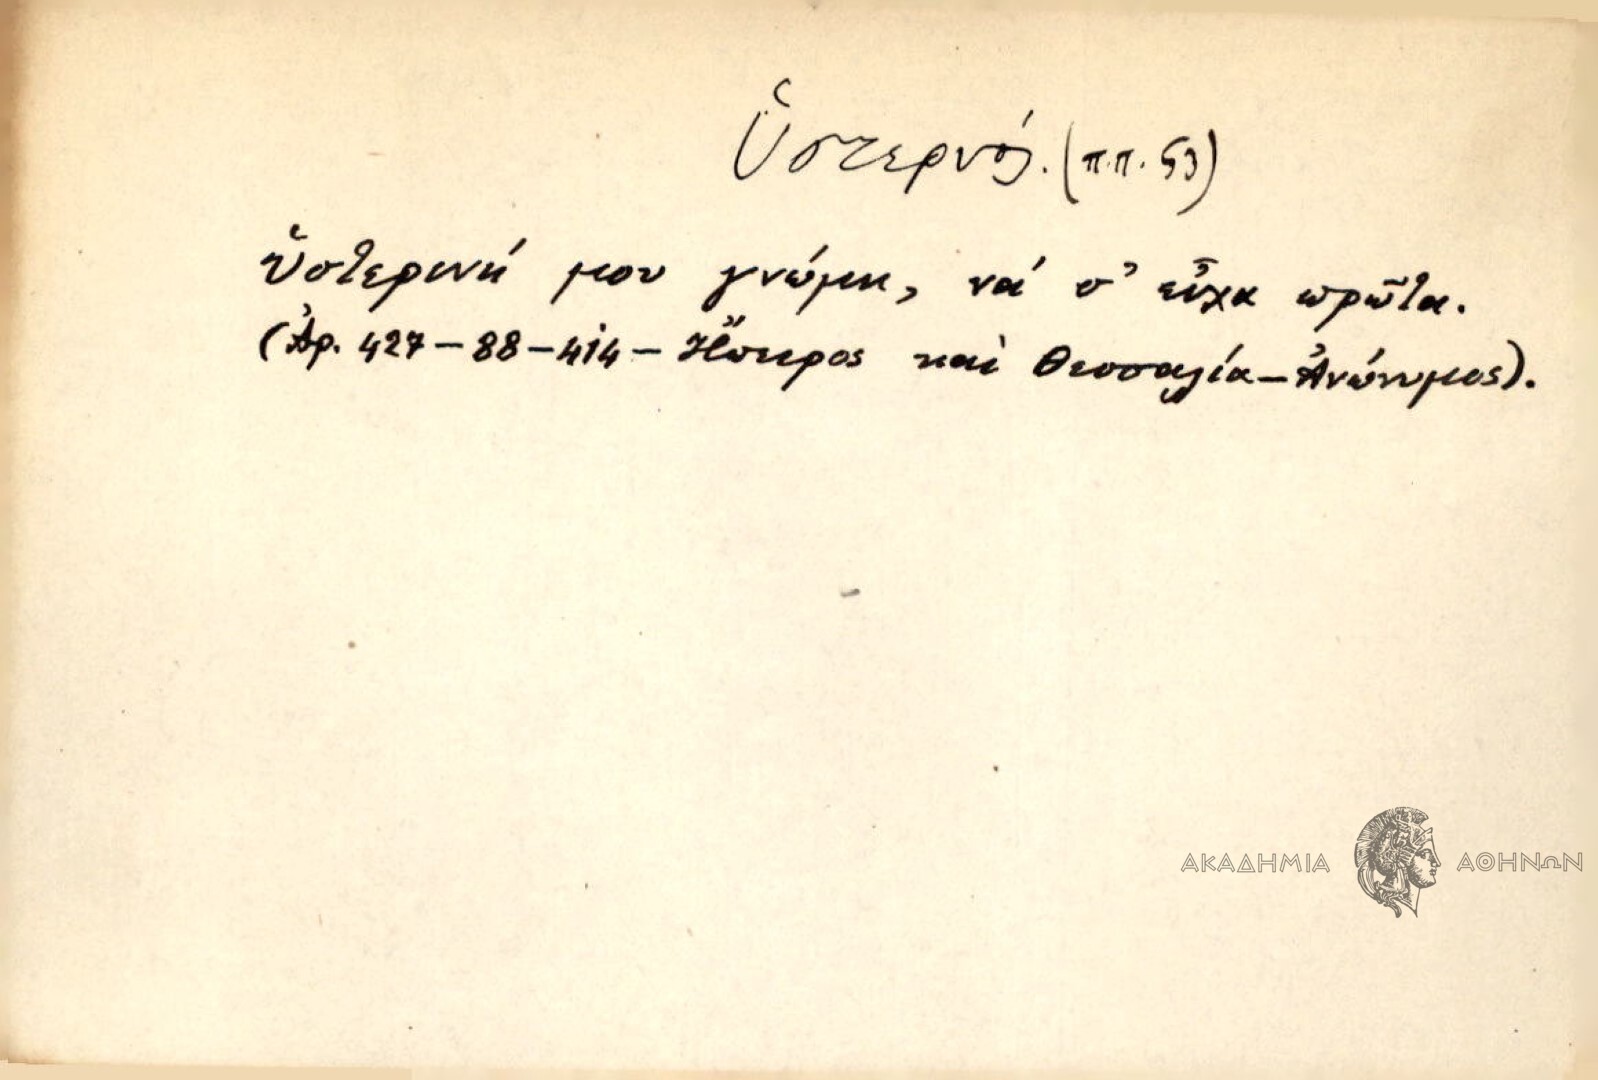 Ὑστερνός. (π.π. 53)
ὑστερινή μου γνώμη, νά σ' εἶχα πρῶτα.
(Ἀρ. 427-88-414- Ἤπειρος καὶ Θεσσαλία-Ἀνώνυμος).
ΑΚΑΔΗΜΙΑ ΑΘΗΝΩΝ